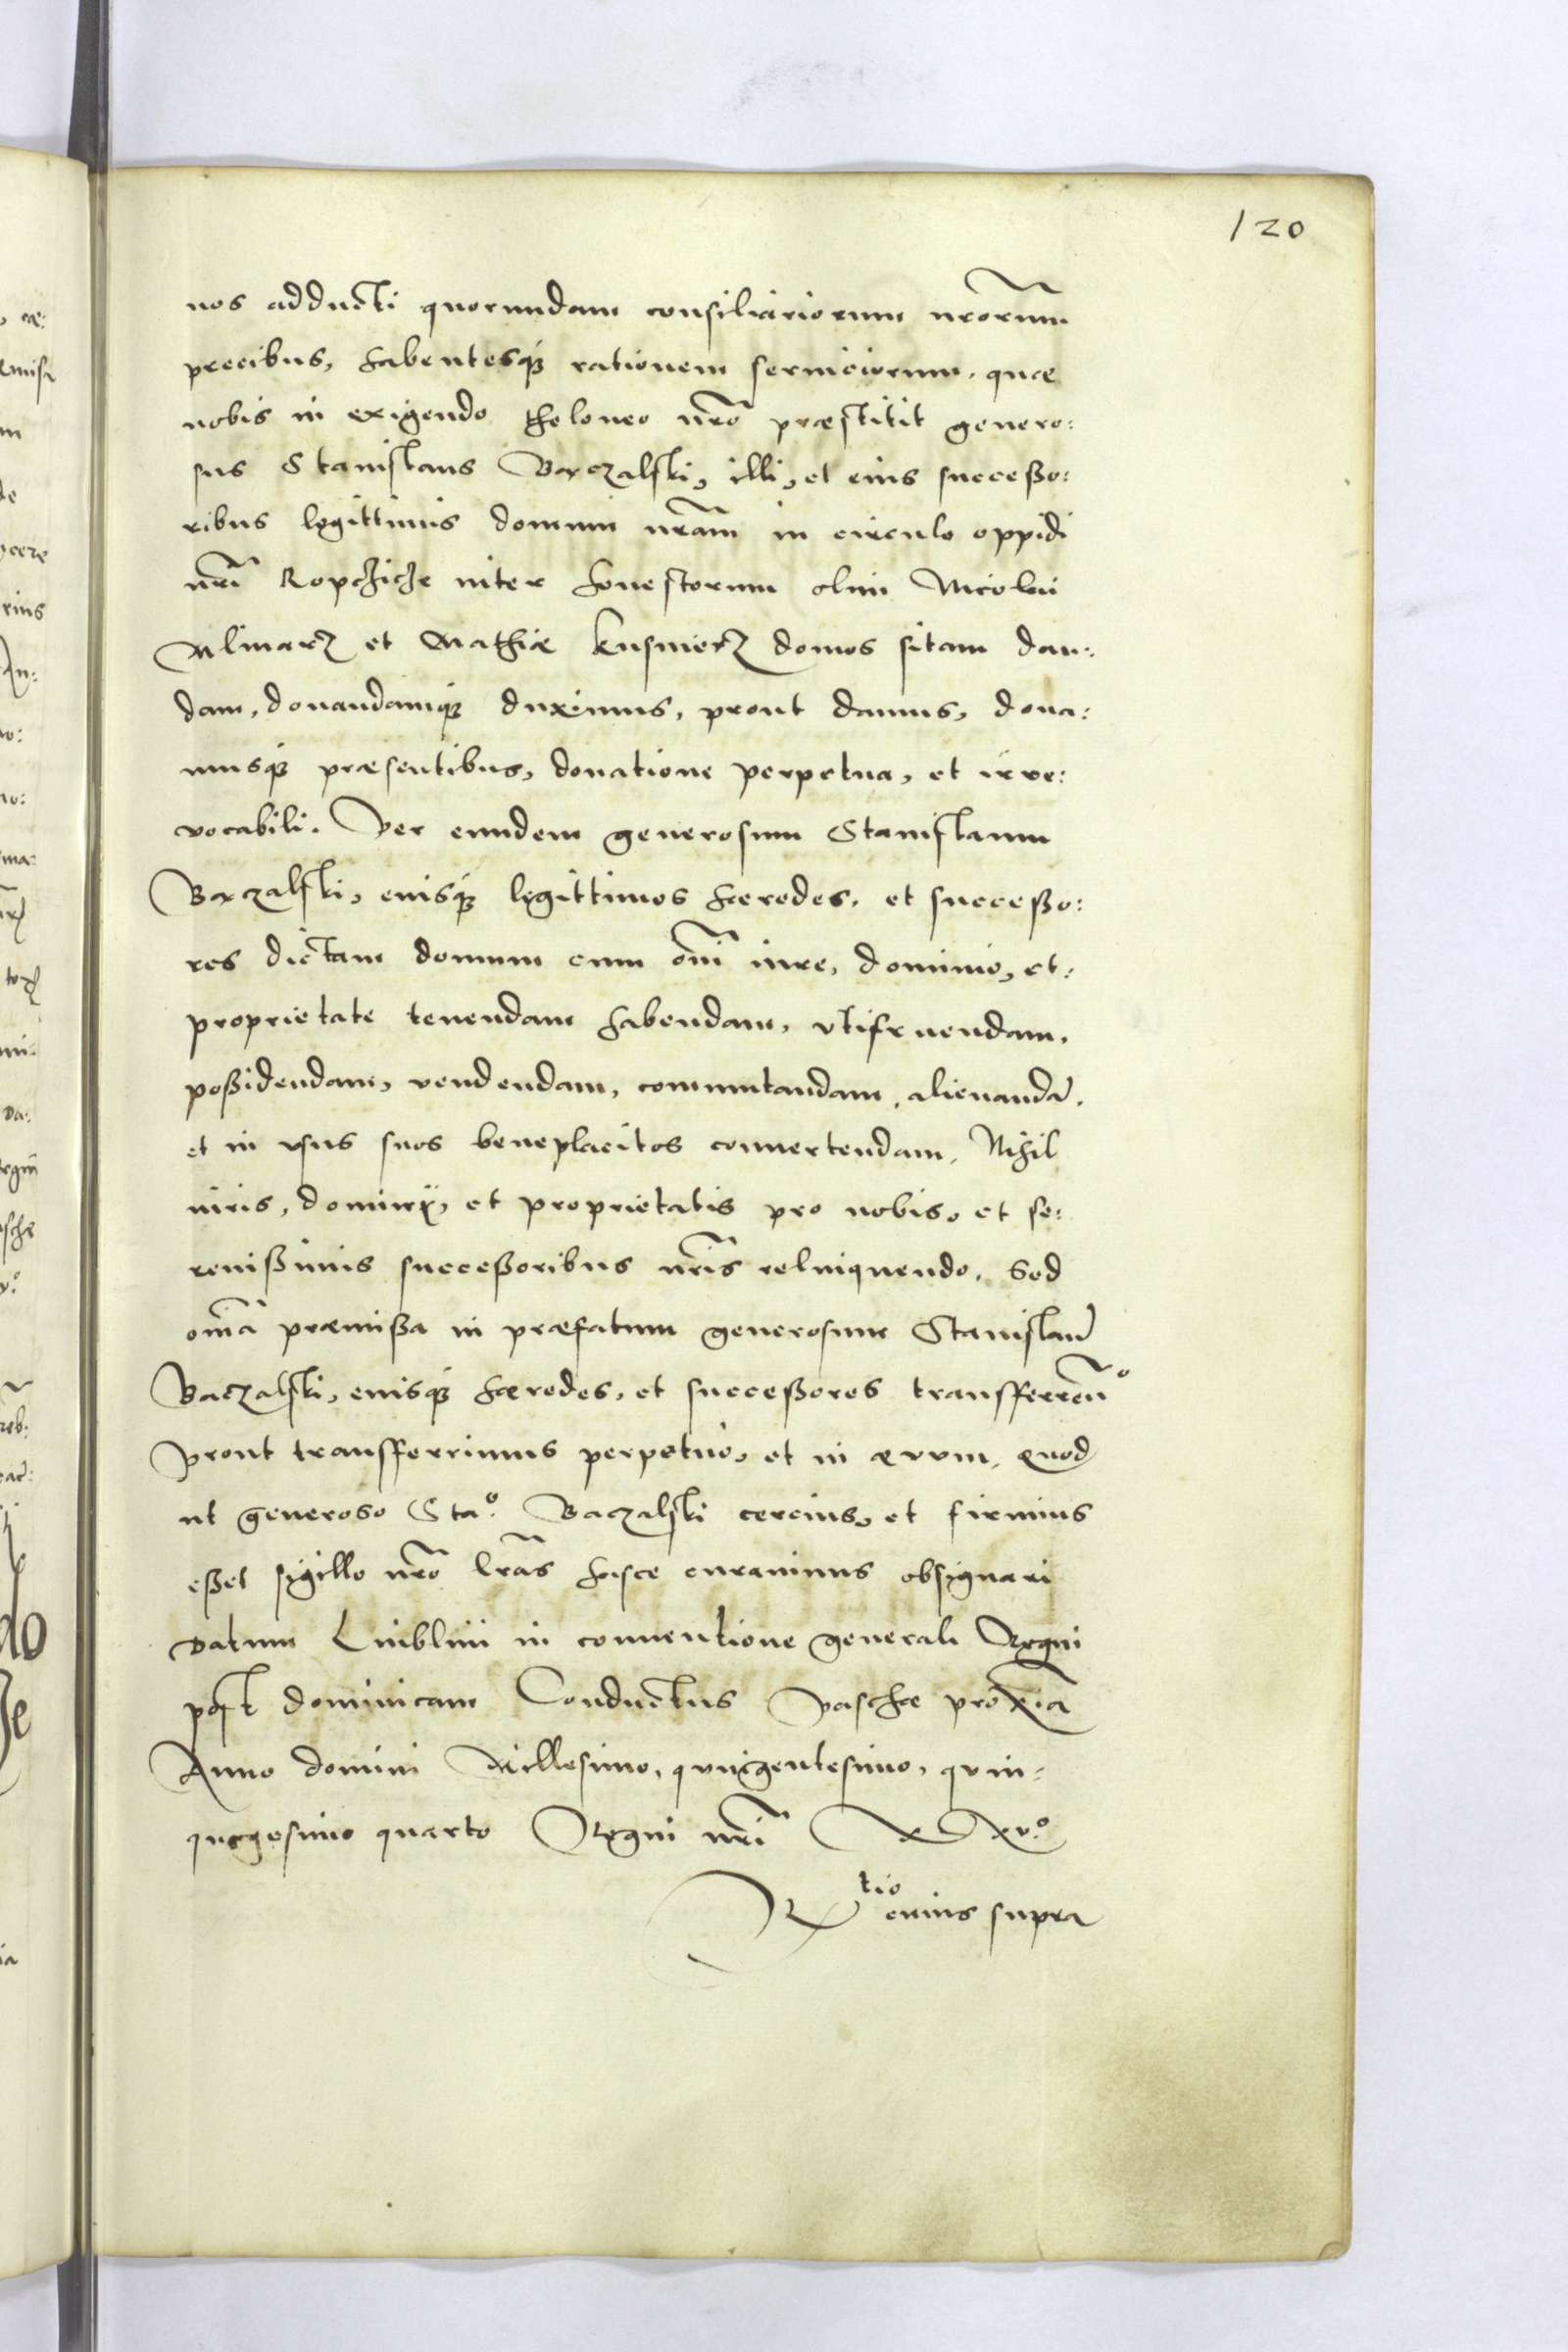 120
nos adducti quorundam consiliariorum nrorum
precibus, habentesq3 rationem seruiciorum, quae
nobis in exigendo theloneo nro praestitit genero:
sus Stanislaus Baczalski, illi, et eius successo:
ribus legittimis domum nram in circulo oppidi
nri Ropchiche inter honestorum olim Nicolai
Mlinarz et Mathiae Kusnierz domos sitam dan:
dam, donandamq3 duximus, prout damus, dona:
musq3 praesentibus, donatione perpetua, et irre:
vocabili. Per eundem generosum Stanislaum
Baczalski, eiusq3 legittimos haeredes, et successo:
res dictam domum cum omi iure, dominio, et:
proprietate tenendam habendam, vtifruendam,
possidendam, vendendam, commutandam, alienandã.
et in vsus suos beneplacitos conuertendam, Nihil
iuris, dominij, et proprietatis pro nobis, et se:
renissimis successoribus nris relinquendo, Sed
omia praemissa in praefatum generosum Stanislaũ
Baczalski, eiusq3 haeredes, et successores transfferrendo
prout transfferrimus perpetuo, et in aevum, quod
ut generoso Sta.o Baczalski cercius, et firmius
esset sigillo nro lras hisce curauimus obsignari
datum Liublini in conuentione generali Regni
post dominicam Conductus Paschae proxia
Anno domini Millesimo, quingentesimo, quin:
quagesimo quarto Regni nri XXv.o
Rtio eiuius supra